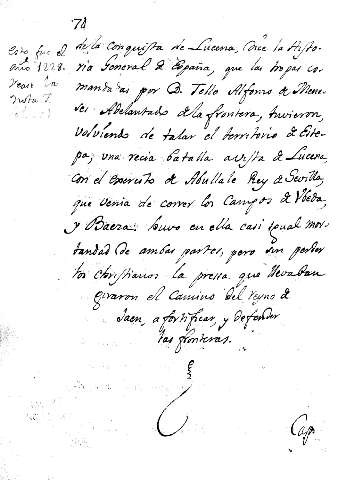 78
Esto fue el
año 1228.
Vease la
Nota 7
de la conquista de Lucena, Dice la Histo-
ria General de España, que las tropas co-
mandadas por D. Tello Alfonso de Mene-
ses Adelantado de la frontera, tuvieron,
volviendo de talar el territorio de Este-
pa, una recia batalla a vista de Lucena,
con el exercito de Abullale Rey de Sevilla,
que venia de correr los Campos de Ubeda,
y Baeza: huvo en ella casi igual mor-
tandad de ambas partes, pero sin perder
los Christianos la pressa que llevaban
giraron el camino del reyno de
Jaen, a fortificar, y defender
las fronteras.
Cap.